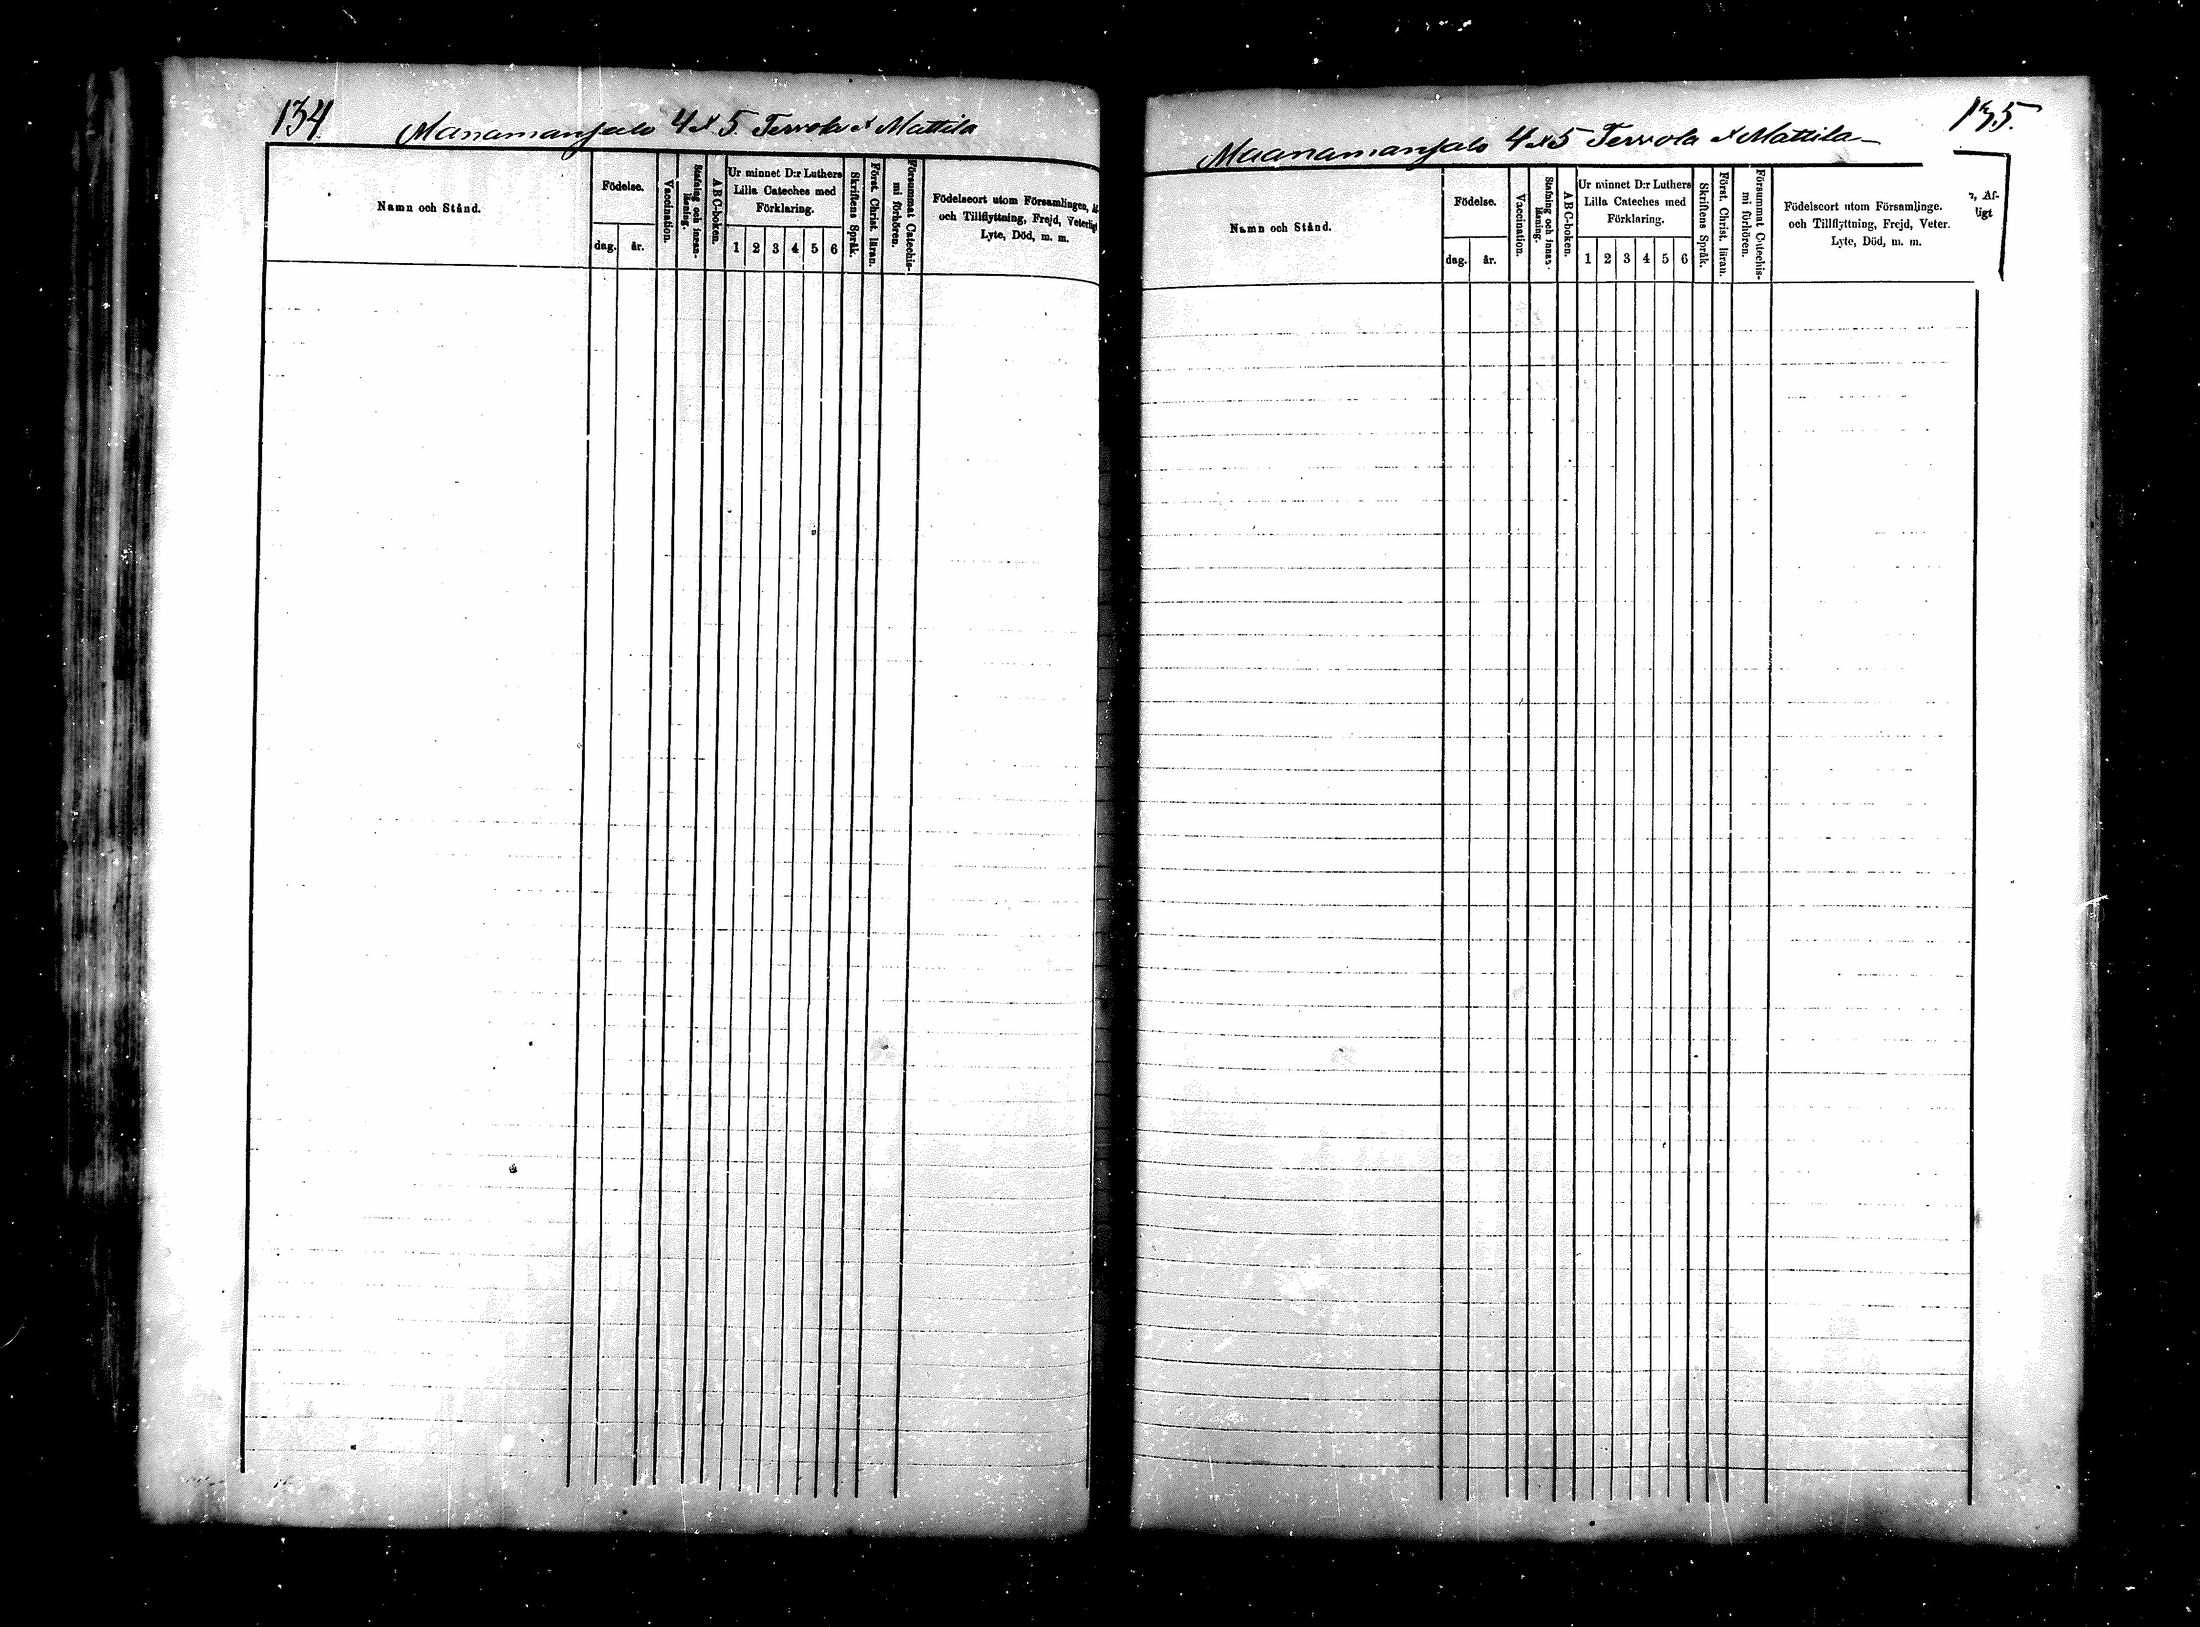 134
Manamansalo 4 & 5 Tervola & Mattila
Namn och Stånd.
Födelse.
dag.
år.
Vaccination.
Stafning och innan-
läsning.
ABC-boken.
Ur minnet D:r Luthers
Lilla Cateches med
Förklaring.
1 2 3 4 5 6
Skriftens Språk.
Först. Christ. läran.
Försummat Catechis-
mi förhören.
Födelseort utom Församlingen, A
och Tillflyttning, Frejd, Veterligt
Lyte, Död, m. m.
135.
Maanamansalo 4 & 5 Tervola & Mattila
Namn och Stånd.
Födelse.
dag.
år.
Vaccination.
Stafning och innan-
läsning.
ABC-boken.
Ur minnet D:r Luthers
Lilla Cateches med
Förklaring.
1 2 3 4 5 6
Skriftens Språk.
Först. Christ. läran.
Försummat Catechis-
mi förhören.
Födelseort utom Församlinge.
och Tillflyttning, Frejd, Veter.
Lyte, Död, m. m.
, Af-
ligt